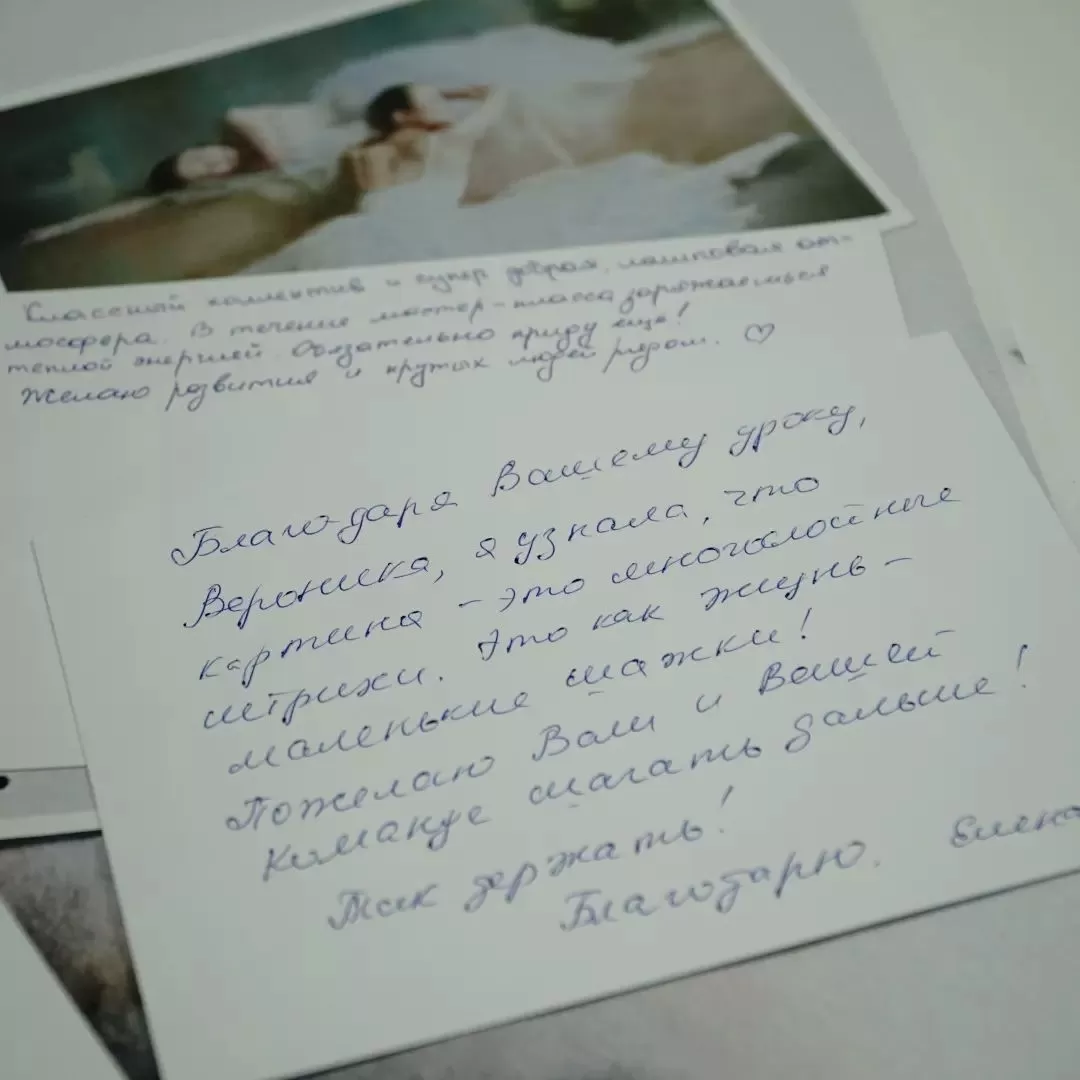 Классный коллектив и супер добрая, ламповая ат-
мосфера. В течение мастер-класса заряжаешься
теплой энергией. Обязательно приду еще!
Желаю развития и крутых людей рядом. ♡
Благодаря Вашему уроку,
Вероника, я узнала, что
картина - это многослойные
штрихи. Это как жизнь -
маленькие шажки!
Пожелаю Вам и Вашей
команде шагать дальше!
Так держать!
Благодарю. Елена